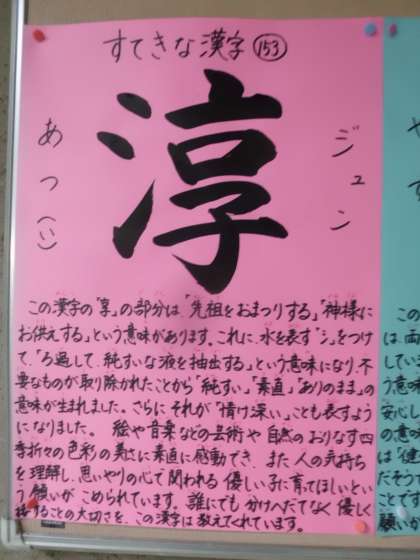 すてきな漢字 153
淳
ジュン
あつ(い)
この漢字の「享」の部分は、「先祖をおまつりする」「神様に
お供えする」という意味があります。これに、水を表す「シ」をつけ
て、「ろ過して、純すいな液を抽出する」という意味になり、不
要なものが取り除かれたことから「純すい」「素直」「ありのまま」の
意味が生まれました。さらに それが「情け深い」ことも表すよう
になりました。 絵や音楽などの芸術や 自然の おりなす四
季折々の色彩の美さに素直に感動でき、また 人の気持ち
を理解し、思いやりの心で関われる 優しい子に育てほしいとい
う願いが こめられています。 誰にでも わけへだてなく 優しく
接することの大切さを、この漢字は 教えてくれています。
や
す
この
は、両
している
う意味
安心し
の意味
は「健
だそう
ことです
願いか